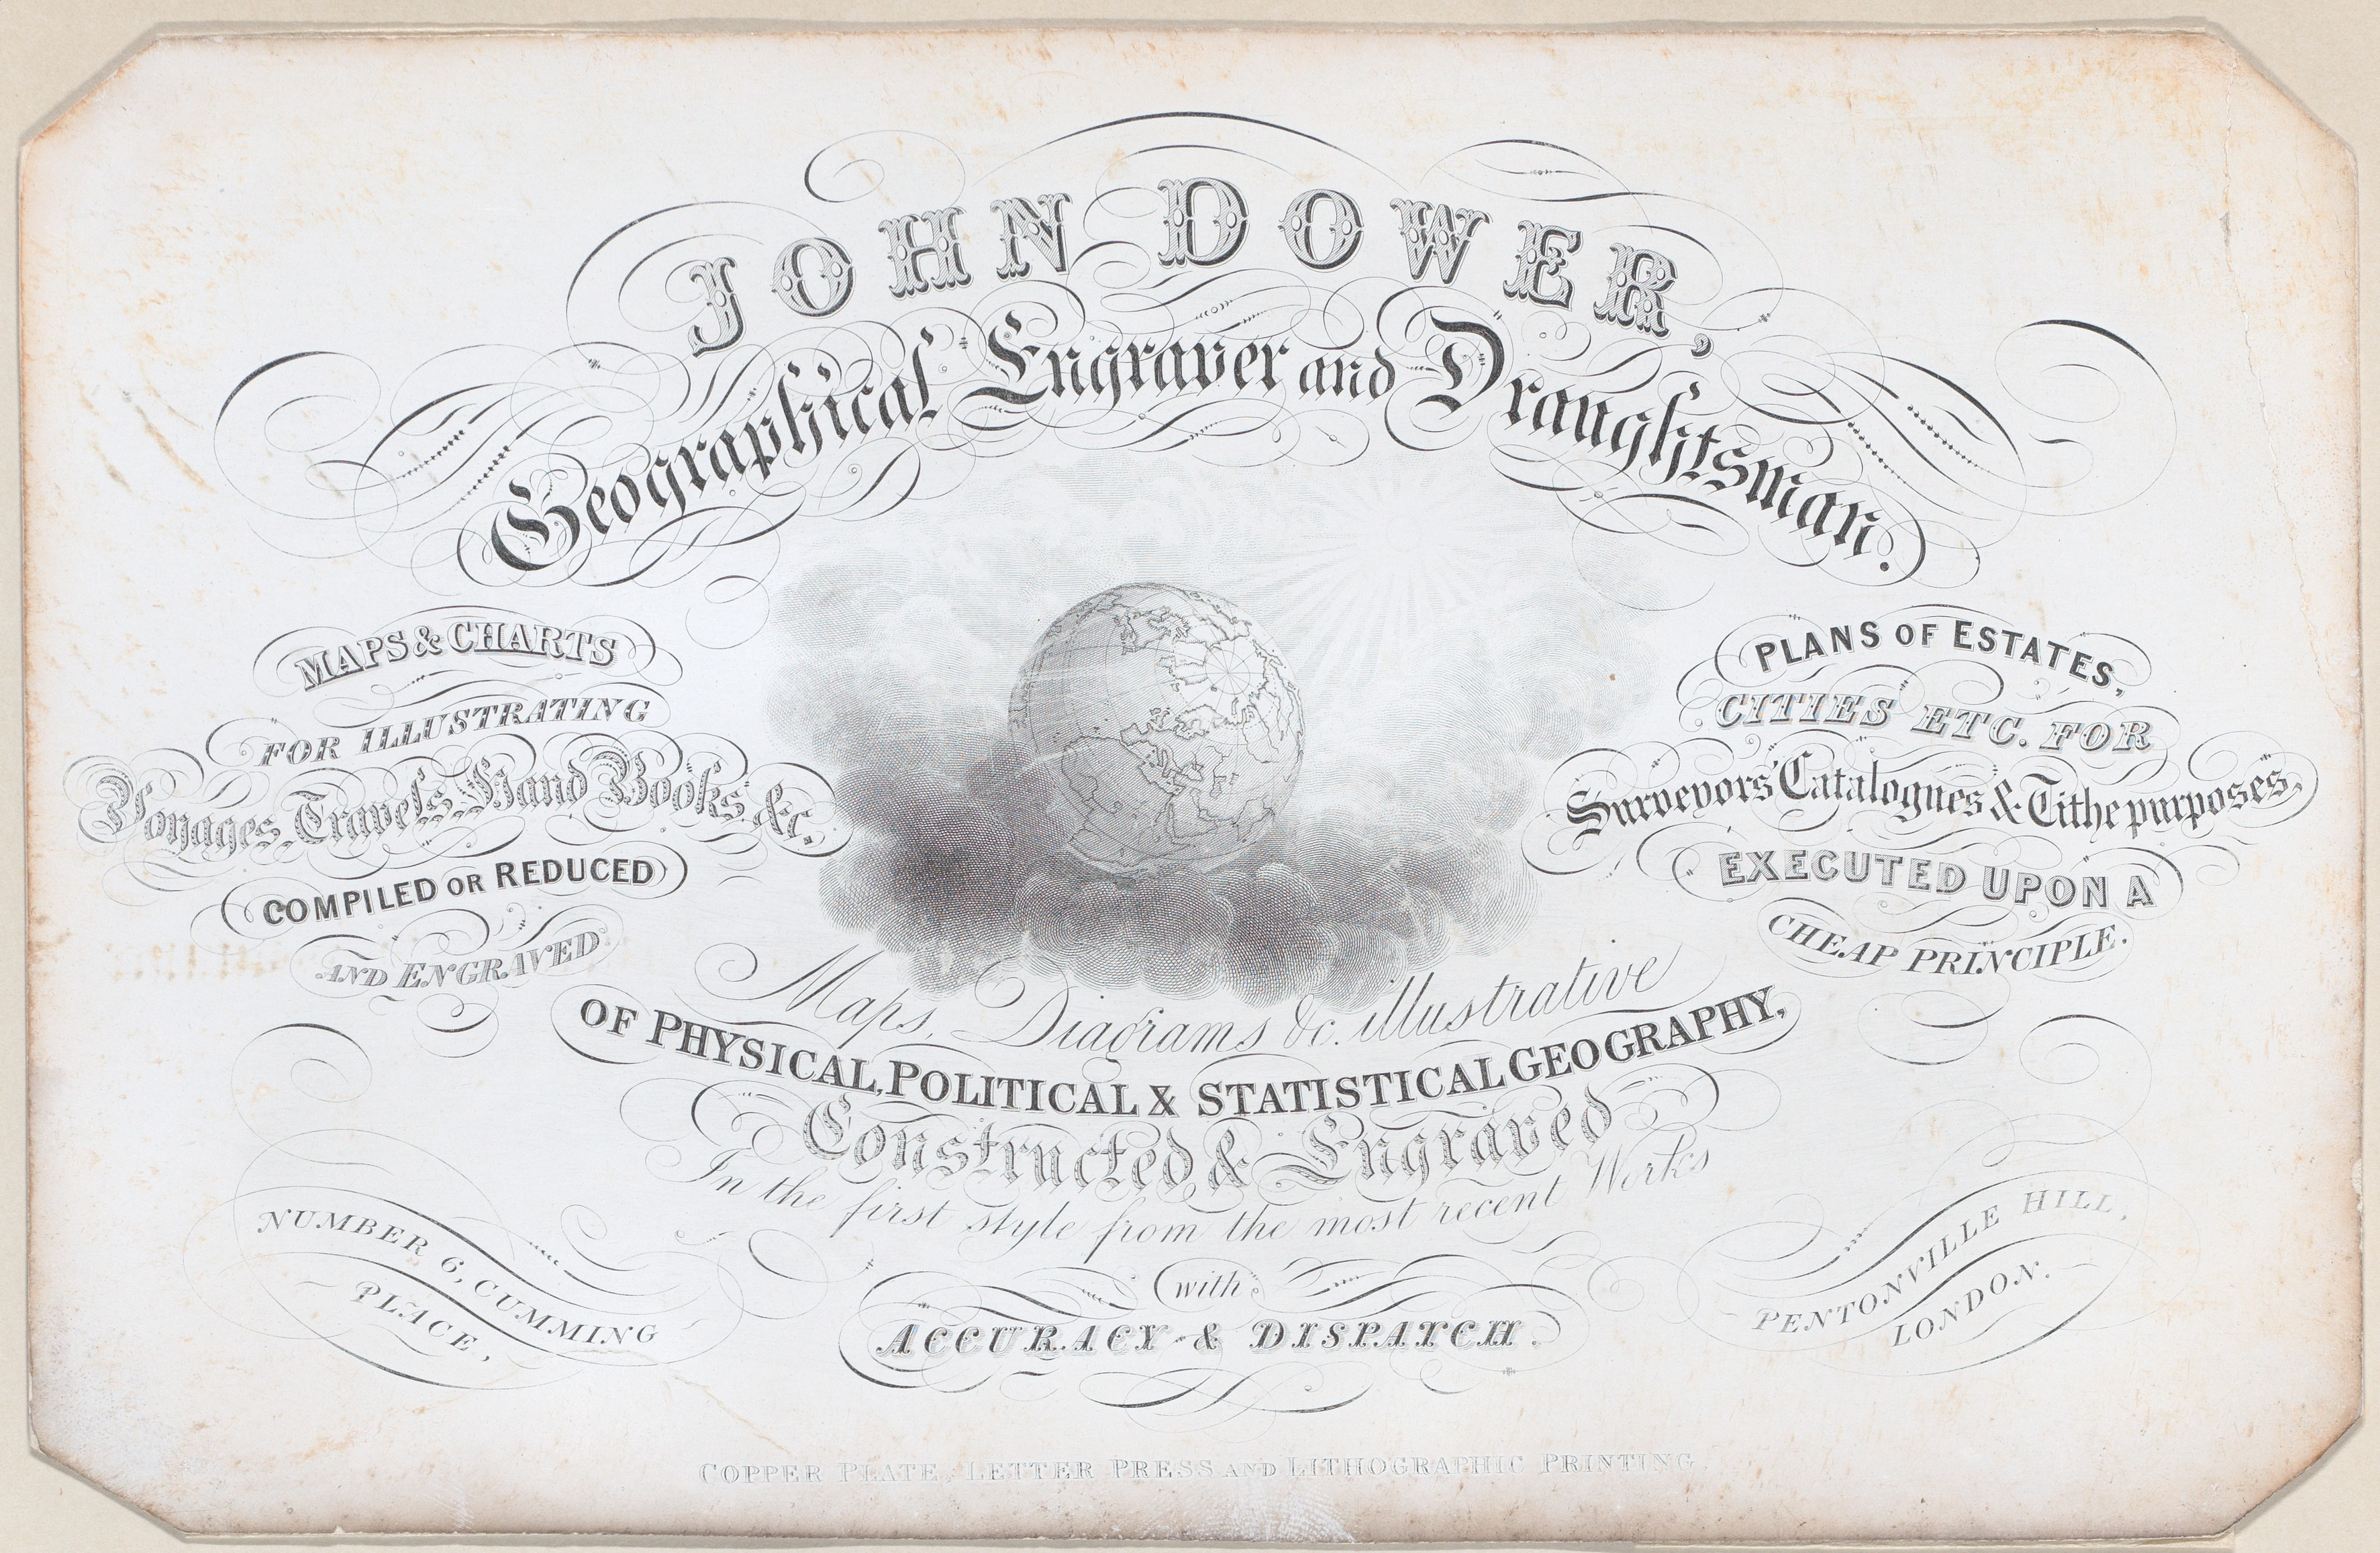 JOHN DOWER,
Geographical Engraver and Draughtsman.
MAPS & CHARTS
FOR ILLUSTRATING
Voyages, Travels, Hand Books, &c.
COMPILED OR REDUCED
AND ENGRAVED
PLANS OF ESTATES,
CITIES ETC. FOR
Surveyors' Catalogues & Tithe purposes,
EXECUTED UPON A
CHEAP PRINCIPLE.
Maps, Diagrams &c. illustrative
OF PHYSICAL, POLITICAL & STATISTICAL GEOGRAPHY,
Constructed & Engraved
In the first style from the most recent Works
with
ACCURACY & DISPATCH.
NUMBER 6, CUMMING
PLACE,
PENTONVILLE HILL,
LONDON.
COPPER PLATE, LETTER PRESS AND LITHOGRAPHIC PRINTING.